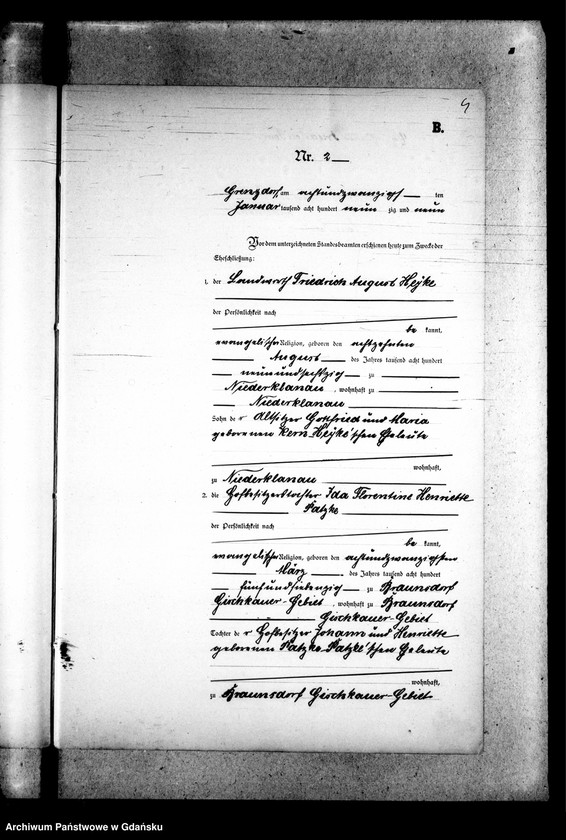 B.
Nr. 2
Grenzdorf, am achtundzwanzigsten
Januar tausend acht hundert neun zig und neun
Vor dem unterzeichneten Standesbeamten erschienen heute zum Zwecke der
Eheschließung:
1. der Landwirth Friedrich August Heyke
der Persönlichkeit nach
be kannt,
evangelischer Religion, geboren den achtzehnten
August des Jahres tausend acht hundert
neunundsechszig zu
Niederklanau, wohnhaft zu
Niederklanau
Sohn der Altsitzer Gottfried und Maria
geborenen Kern-Heyke'schen Eheleute
wohnhaft,
zu Niederklanau
2. die Hofbesitzerstochter Ida Florentine Henriette
Patzke
der Persönlichkeit nach
be kannt,
evangelischer Religion, geboren den achtundzwanzigsten
März des Jahres tausend acht hundert
fünfundsiebenzig zu Braunsdorf
Gischkauer-Gebiet, wohnhaft zu Braunsdorf
Gischkauer-Gebiet
Tochter der Hofbesitzer Johann und Henriette
geborenen Patzke-Patzke'schen Eheleute
wohnhaft,
zu Braunsdorf Gischkauer-Gebiet
Archiwum Państwowe w Gdańsku